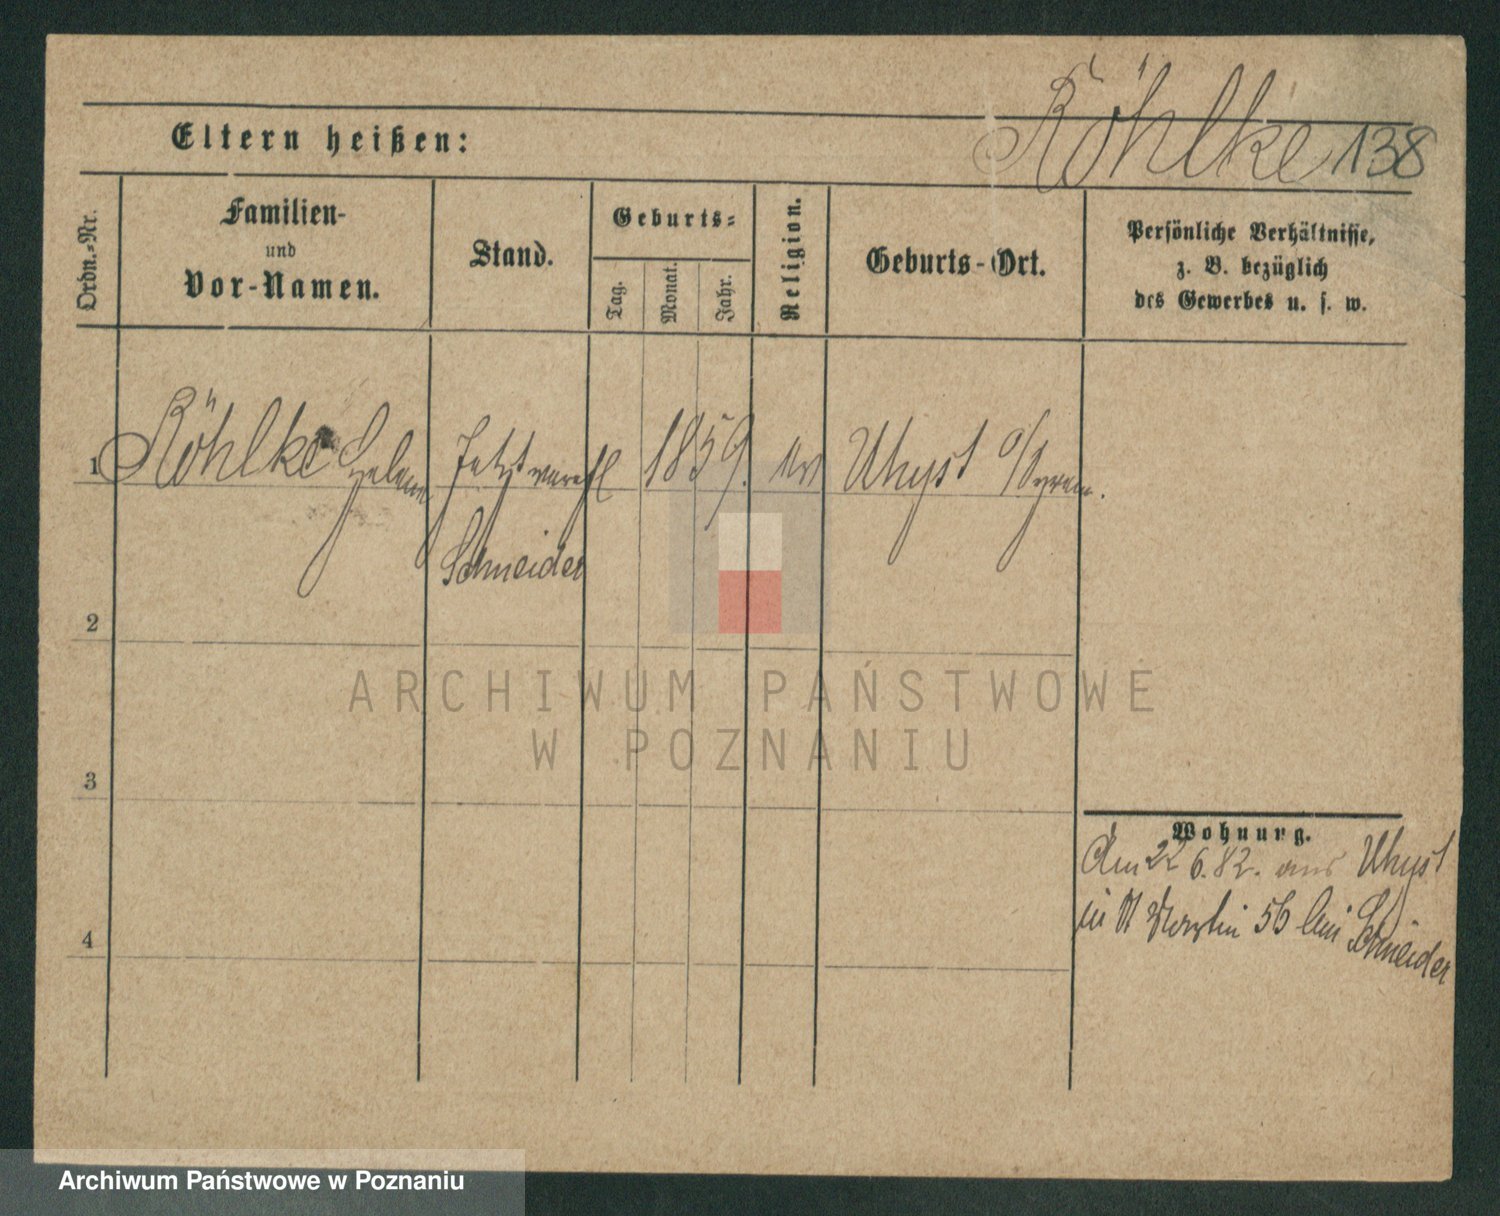 Röhlke 138
Eltern heißen:
Ordn.-Nr.
Familien-
und
Vor-Namen.
Stand.
Geburts-
Tag.
Monat.
Jahr.
Religion.
Geburts-Ort.
Persönliche Verhältnisse,
z. B. bezüglich
des Gewerbes u. s. w.
1 Röhlke Helene Jetzt verehl 1859. Uhyst
Schneider
2
3
4
Wohnung.
Am 22 6. 82. aus Uhyst
in St Martin 56 bei Schneider
ARCHIWUM PAŃSTWOWE
W POZNANIU
Archiwum Państwowe w Poznaniu